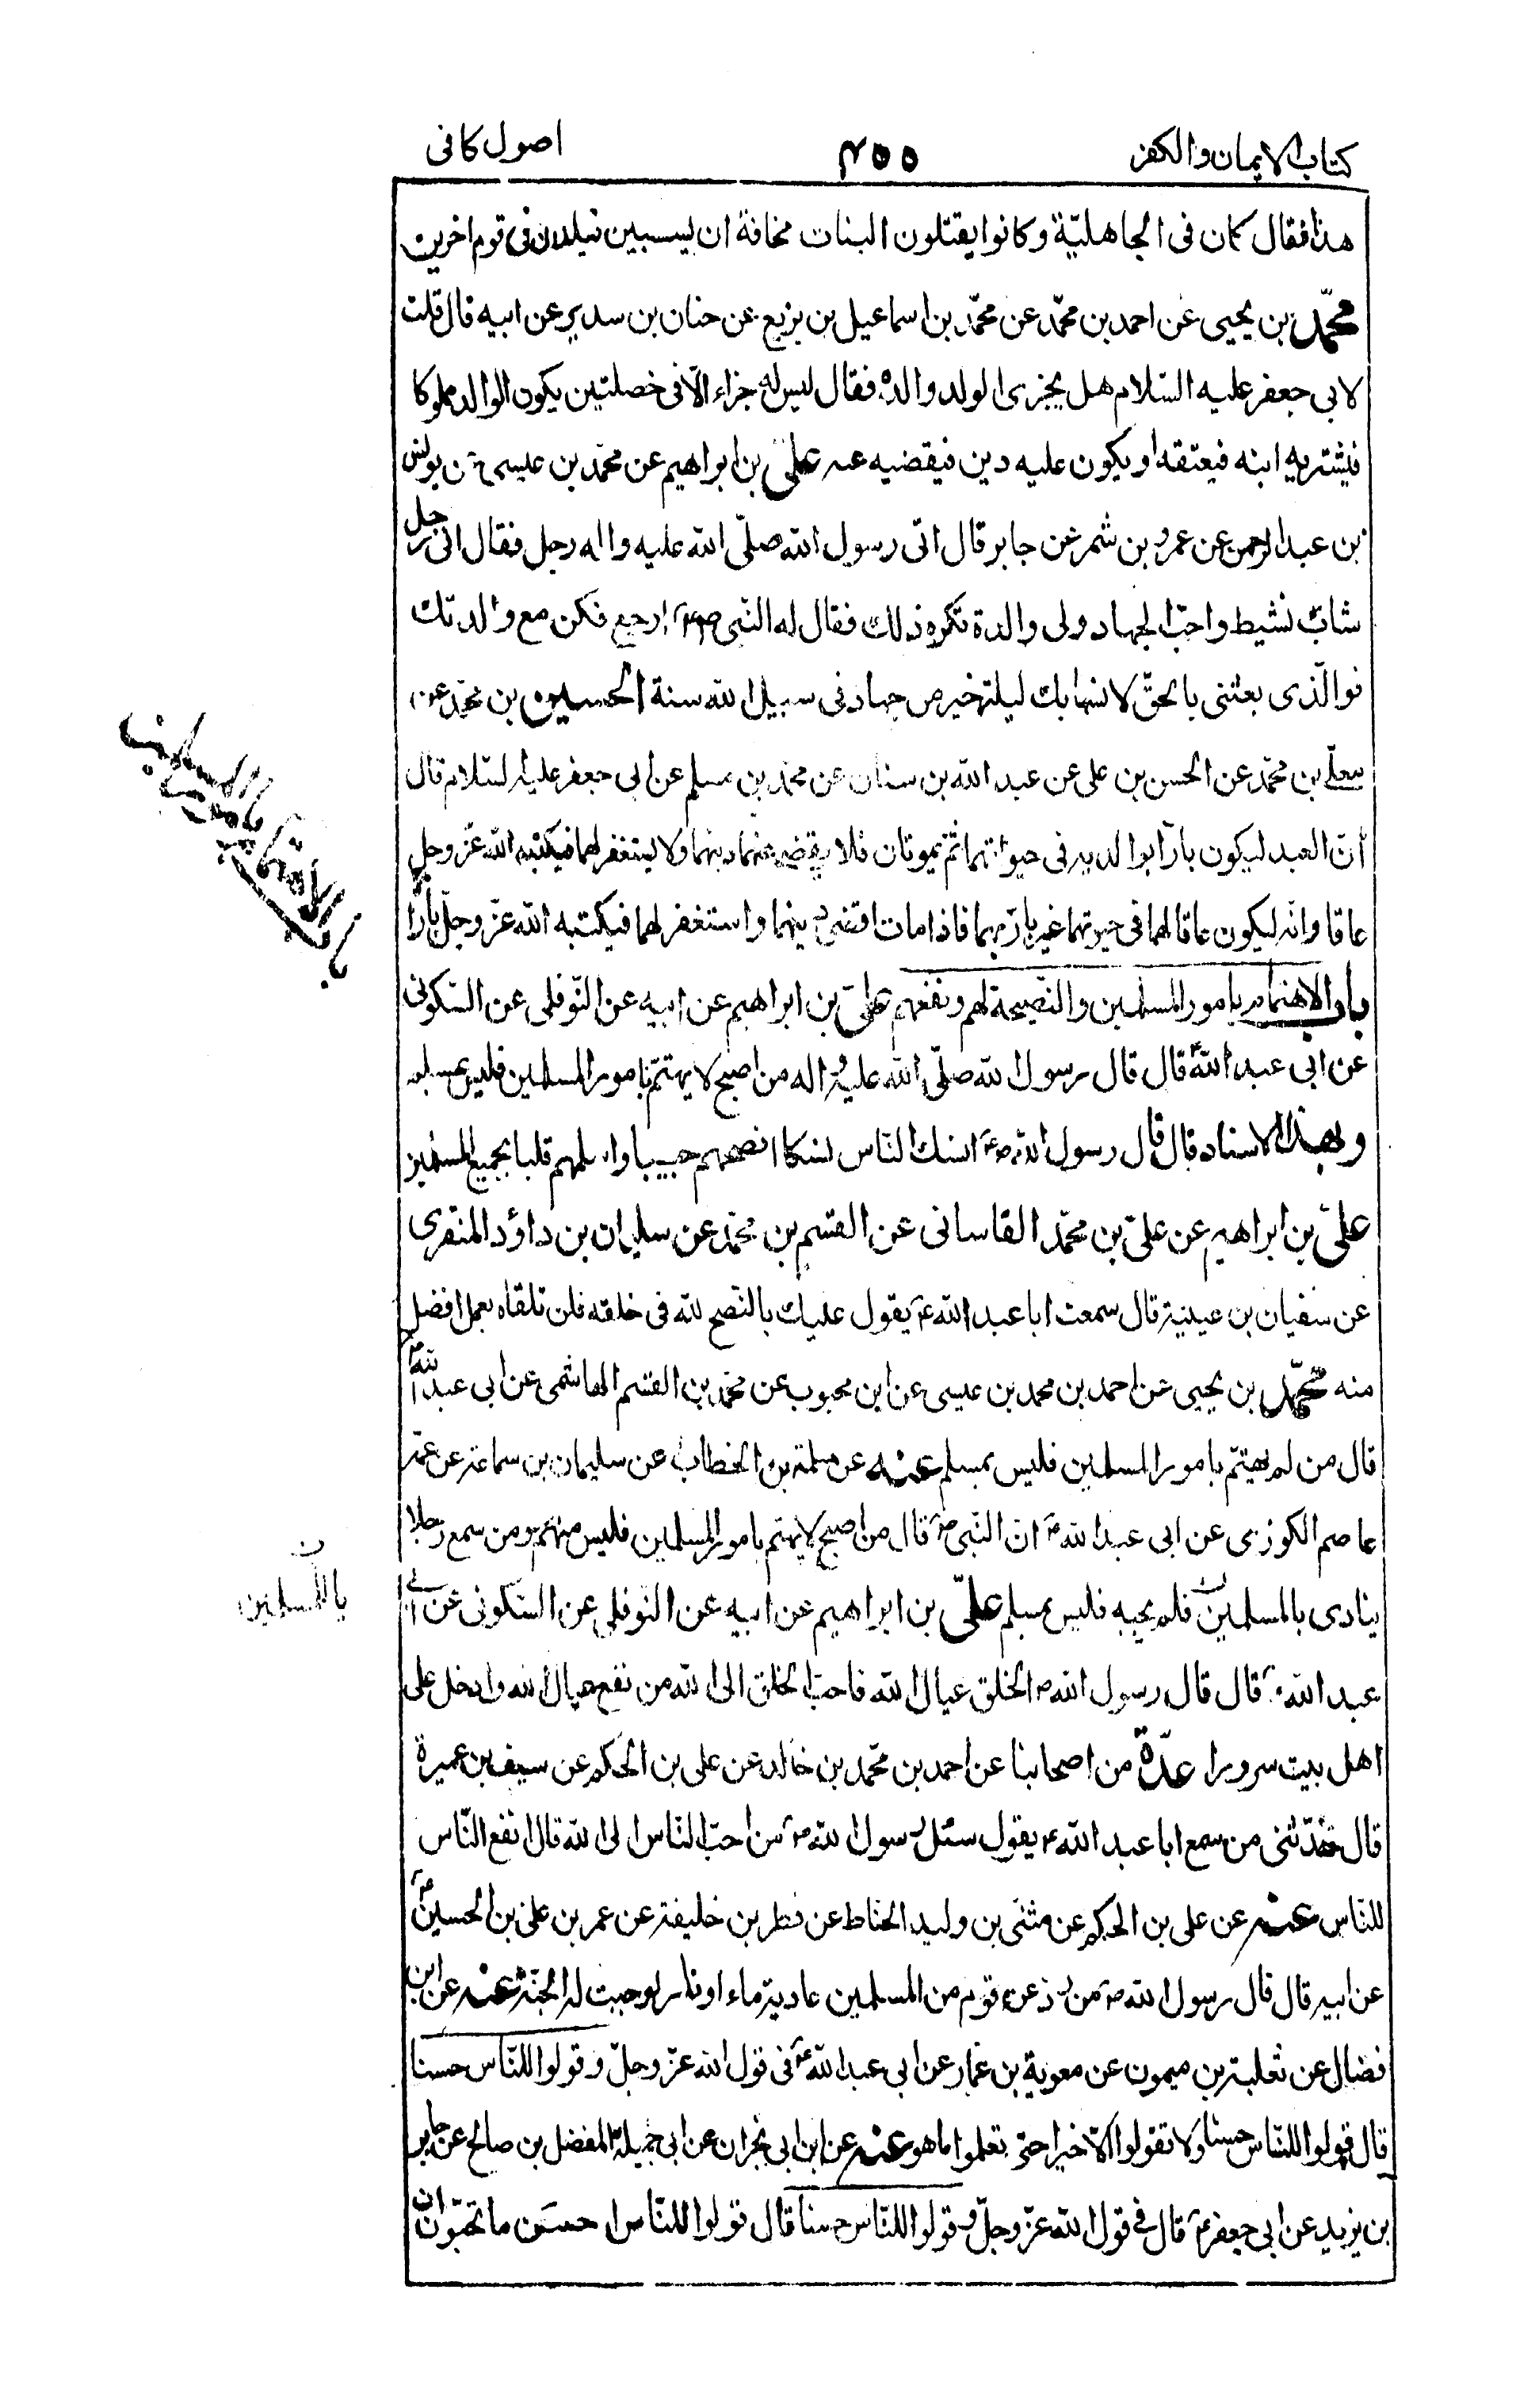 كتاب الايمان والكفر
٤٥٥
اصول كافى
هذا فقال كان فى الجاهليّة وكانوا يقتلون البنات مخافة ان يسبين فيلدن فى قوم اخرين
محمّد بن يحيى عن احمد بن محمّد عن محمّد بن اسماعيل بن بزيع عن حنان بن سدير عن ابيه قال قلت
لابى جعفر عليه السّلام هل يجزى الولد والده فقال ليس له جزاء الّا فى خصلتين يكون الوالد مملوكا
فيشتريه ابنه فيعتقه او يكون عليه دين فيقضيه عنه علىّ بن ابراهيم عن محمّد بن عيسى عن يونس
بن عبد الرحمن عن عمرو بن شمر عن جابر قال اتى رسول الله صلّى الله عليه واله رجل فقال انى رجل
شابّ نشيط واحبّ الجهاد ولى والدة تكره ذلك فقال له النّبى ص ارجع فكن مع والدتك
فوالّذى بعثنى بالحقّ لانسها بك ليلة خير من جهاد فى سبيل الله سنة الحسين بن محمّد عن
معلّى بن محمّد عن الحسن بن على عن عبد الله بن سنان عن محمّد بن مسلم عن ابى جعفر عليه السّلام قال
انّ العبد ليكون بارّا بوالديه فى حيوتهما ثمّ يموتان فلا يقضى عنهما دينهما ولا يستغفر لهما فيكتبه الله عزّ وجل
عاقا وانّه ليكون عاقا لهما فى حيوتهما غير بارّ بهما فاذا ماتا قضى دينهما واستغفر لهما فيكتبه الله عزّ وجلّ بارّا
باب الاهتمام بامور المسلمين والنّصيحة لهم ونفعهم علىّ بن ابراهيم عن ابيه عن النّوفلى عن السّكونى
عن ابى عبد الله ع قال قال رسول الله صلّى الله عليه واله من اصبح لا يهتمّ بامور المسلمين فليس بمسلم
وبهذا الاسناد قال قال رسول الله ص انسك النّاس نسكا انصحهم حبيبا واسلمهم قلبا بجميع المسلمين
علىّ بن ابراهيم عن علىّ بن محمّد القاسانى عن القسم بن محمّد عن سليمان بن داؤد المنقرى
عن سفيان بن عيينة قال سمعت ابا عبد الله ع يقول عليك بالنّصح لله فى خلقه فلن تلقاه بعمل افضل
منه محمّد بن يحيى عن احمد بن محمد بن عيسى عن ابن محبوب عن محمّد بن القسم الهاشمى عن ابى عبد الله ع
قال من لم يهتمّ بامور المسلمين فليس بمسلم عنه عن سلمة بن الخطاب عن سليمان بن سماعة عن عمّه
عاصم الكوزى عن ابى عبد الله ع انّ النّبى ص قال من اصبح لا يهتم بامور المسلمين فليس منهم ومن سمع رجلا
ينادى بالمسلمين فلم يجبه فليس بمسلم علىّ بن ابراهيم عن ابيه عن النوفلى عن السّكونى عن ابى
عبد الله ع قال قال رسول الله ص الخلق عيال الله فاحبّ الخلق الى الله من نفع عيال الله وادخل على
اهل بيت سرورا عدّة من اصحابنا عن احمد بن محمّد بن خالد عن على بن الحكم عن سيف بن عميرة
قال حدّثنى من سمع ابا عبد الله ع يقول سئل رسول الله ص من احبّ النّاس الى الله قال انفع النّاس
للنّاس عنه عن على بن الحكم عن مثنّى بن وليد الحنّاط عن فطر بن خليفة عن عمر بن على بن الحسين ع
عن ابيه قال قال رسول الله ص من ردّ عن قوم من المسلمين عادية ماء او نار اوجبت له الجنّة عنه عن ابن
فضال عن ثعلبة بن ميمون عن معوية بن عمّار عن ابى عبد الله ع فى قول الله عزّ وجلّ وقولوا للنّاس حسنا
قال قولوا للنّاس حسنا ولا تقولوا الّا خيرا حتّى تعلموا ما هو عنه عن ابن ابى نجران عن ابى جميلة المفضل بن صالح عن جابر
بن يزيد عن ابى جعفر ع قال فى قول الله عزّ وجلّ وقولوا للنّاس حسنا قال قولوا للنّاس احسن ما تحبّون ان
باب الاهتمام بامور المسلمين
يا للمسلمين
ن